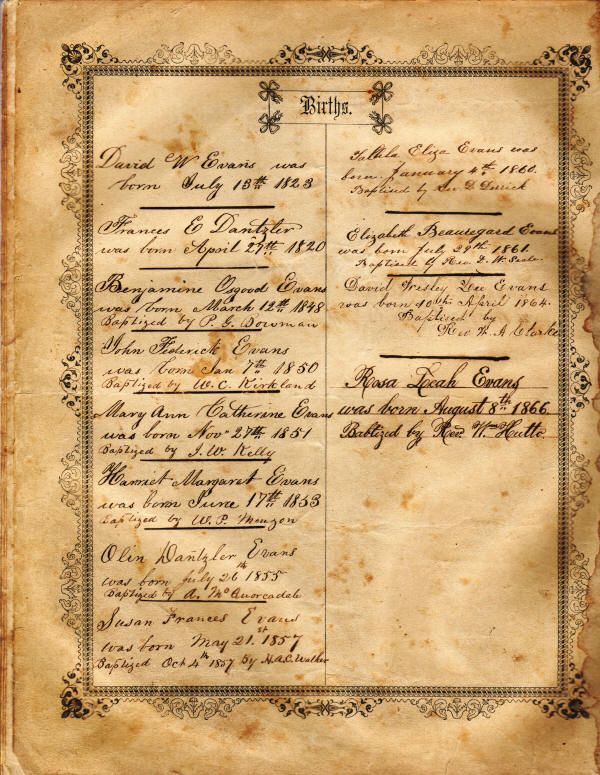 Births.
David W Evans was
born July 13th 1823
Frances E Dantzler
was born April 27th 1820
Benjamine Osgood Evans
was born March 12th 1848
Baptized by P. G. Bowman
John Federick Evans
was born Jan 7th 1850
Baptized by W. C. Kirkland
Mary Ann Catherine Evans
was born Nov 27th 1851
Baptized by J. W. Kelly
Harriet Margaret Evans
was born June 17th 1853
Baptized by W. P. Mouzon
Olin Dantzler Evans
was born July 26th 1855
Baptized by A. McCuorcadale
Susan Frances Evans
was born May 21.st 1857
Baptized Oct 4th 1857 By H.A.C. Walker
Eliza Evans was
born January 4th 1860.
Baptised by Rev D. Derrick
Elizabeth Beauregard Evans
was born July 29th 1861.
Baptised by Rev.
David Presley Lee Evans
was born 10th April 1864.
Baptised by
Rev W. A Clarke
Rosa Leah Evans
was born August 8th 1866.
Babtized by Rev. Wm Hutto.